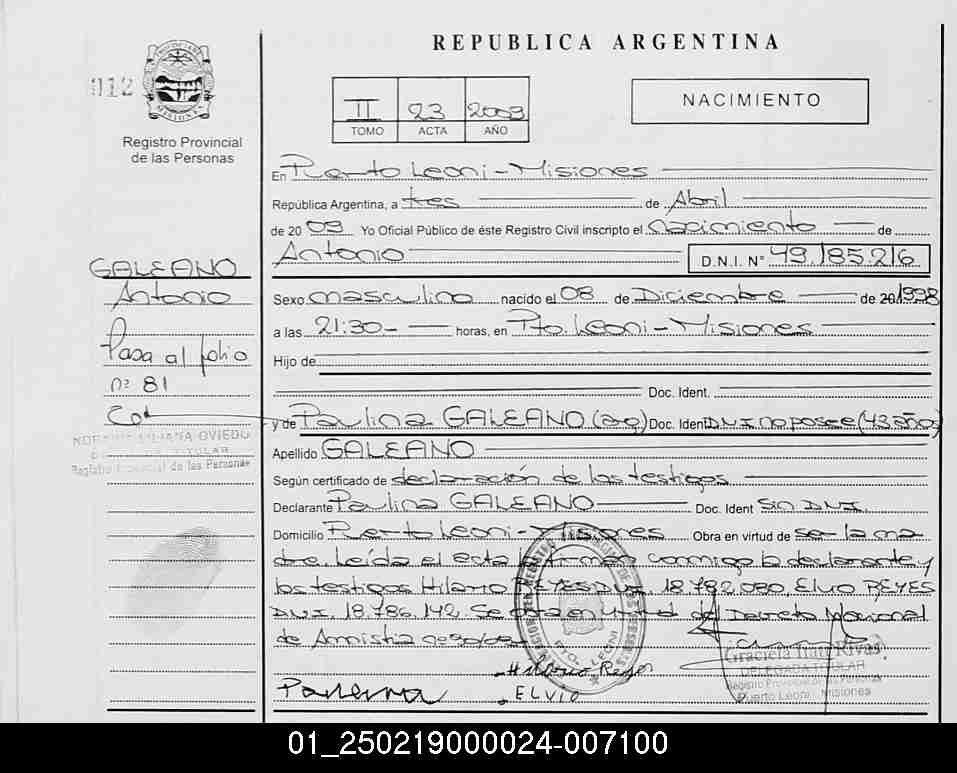 REPUBLICA ARGENTINA
012
II 23 2009
TOMO ACTA AÑO
NACIMIENTO
MISIONES
Registro Provincial
de las Personas
GALEANO
Antonio
Pasa al folio
nº 81
OVIEDO
TITULAR
de las Personas
En Puerto Leoni - Misiones
República Argentina, a tres de Abril
de 2009 Yo Oficial Público de éste Registro Civil inscripto el nacimiento de
Antonio D.N.I. N° 49.185.216
Sexo masculino nacido el 08 de Diciembre de 20 1998
a las 21:30- horas, en Pto. Leoni - Misiones
Hijo de
Doc. Ident.
y de Paulina GALEANO (arg) Doc. Ident D.N.I no posee (43 años)
Apellido GALEANO
Según certificado de declaración de los testigos
Declarante Paulina GALEANO Doc. Ident Sin D.N.I.
Domicilio Puerto Leoni - Misiones Obra en virtud de ser la ma
dre. Leída el acta firman conmigo la declarante y
los testigos Hilario REYES D.N.I. 18.782.080, Elvio REYES
D.N.I. 18.786.142. Se labra en virtud del Decreto Nacional
de Amnistia nº 90/09
PTO. LEONI
Hilario Reyes
ELVIO
Graciela Rivas
DELEGADA TITULAR
Registro Provincial de las Personas
Puerto Leoni - Misiones
01_250219000024-007100